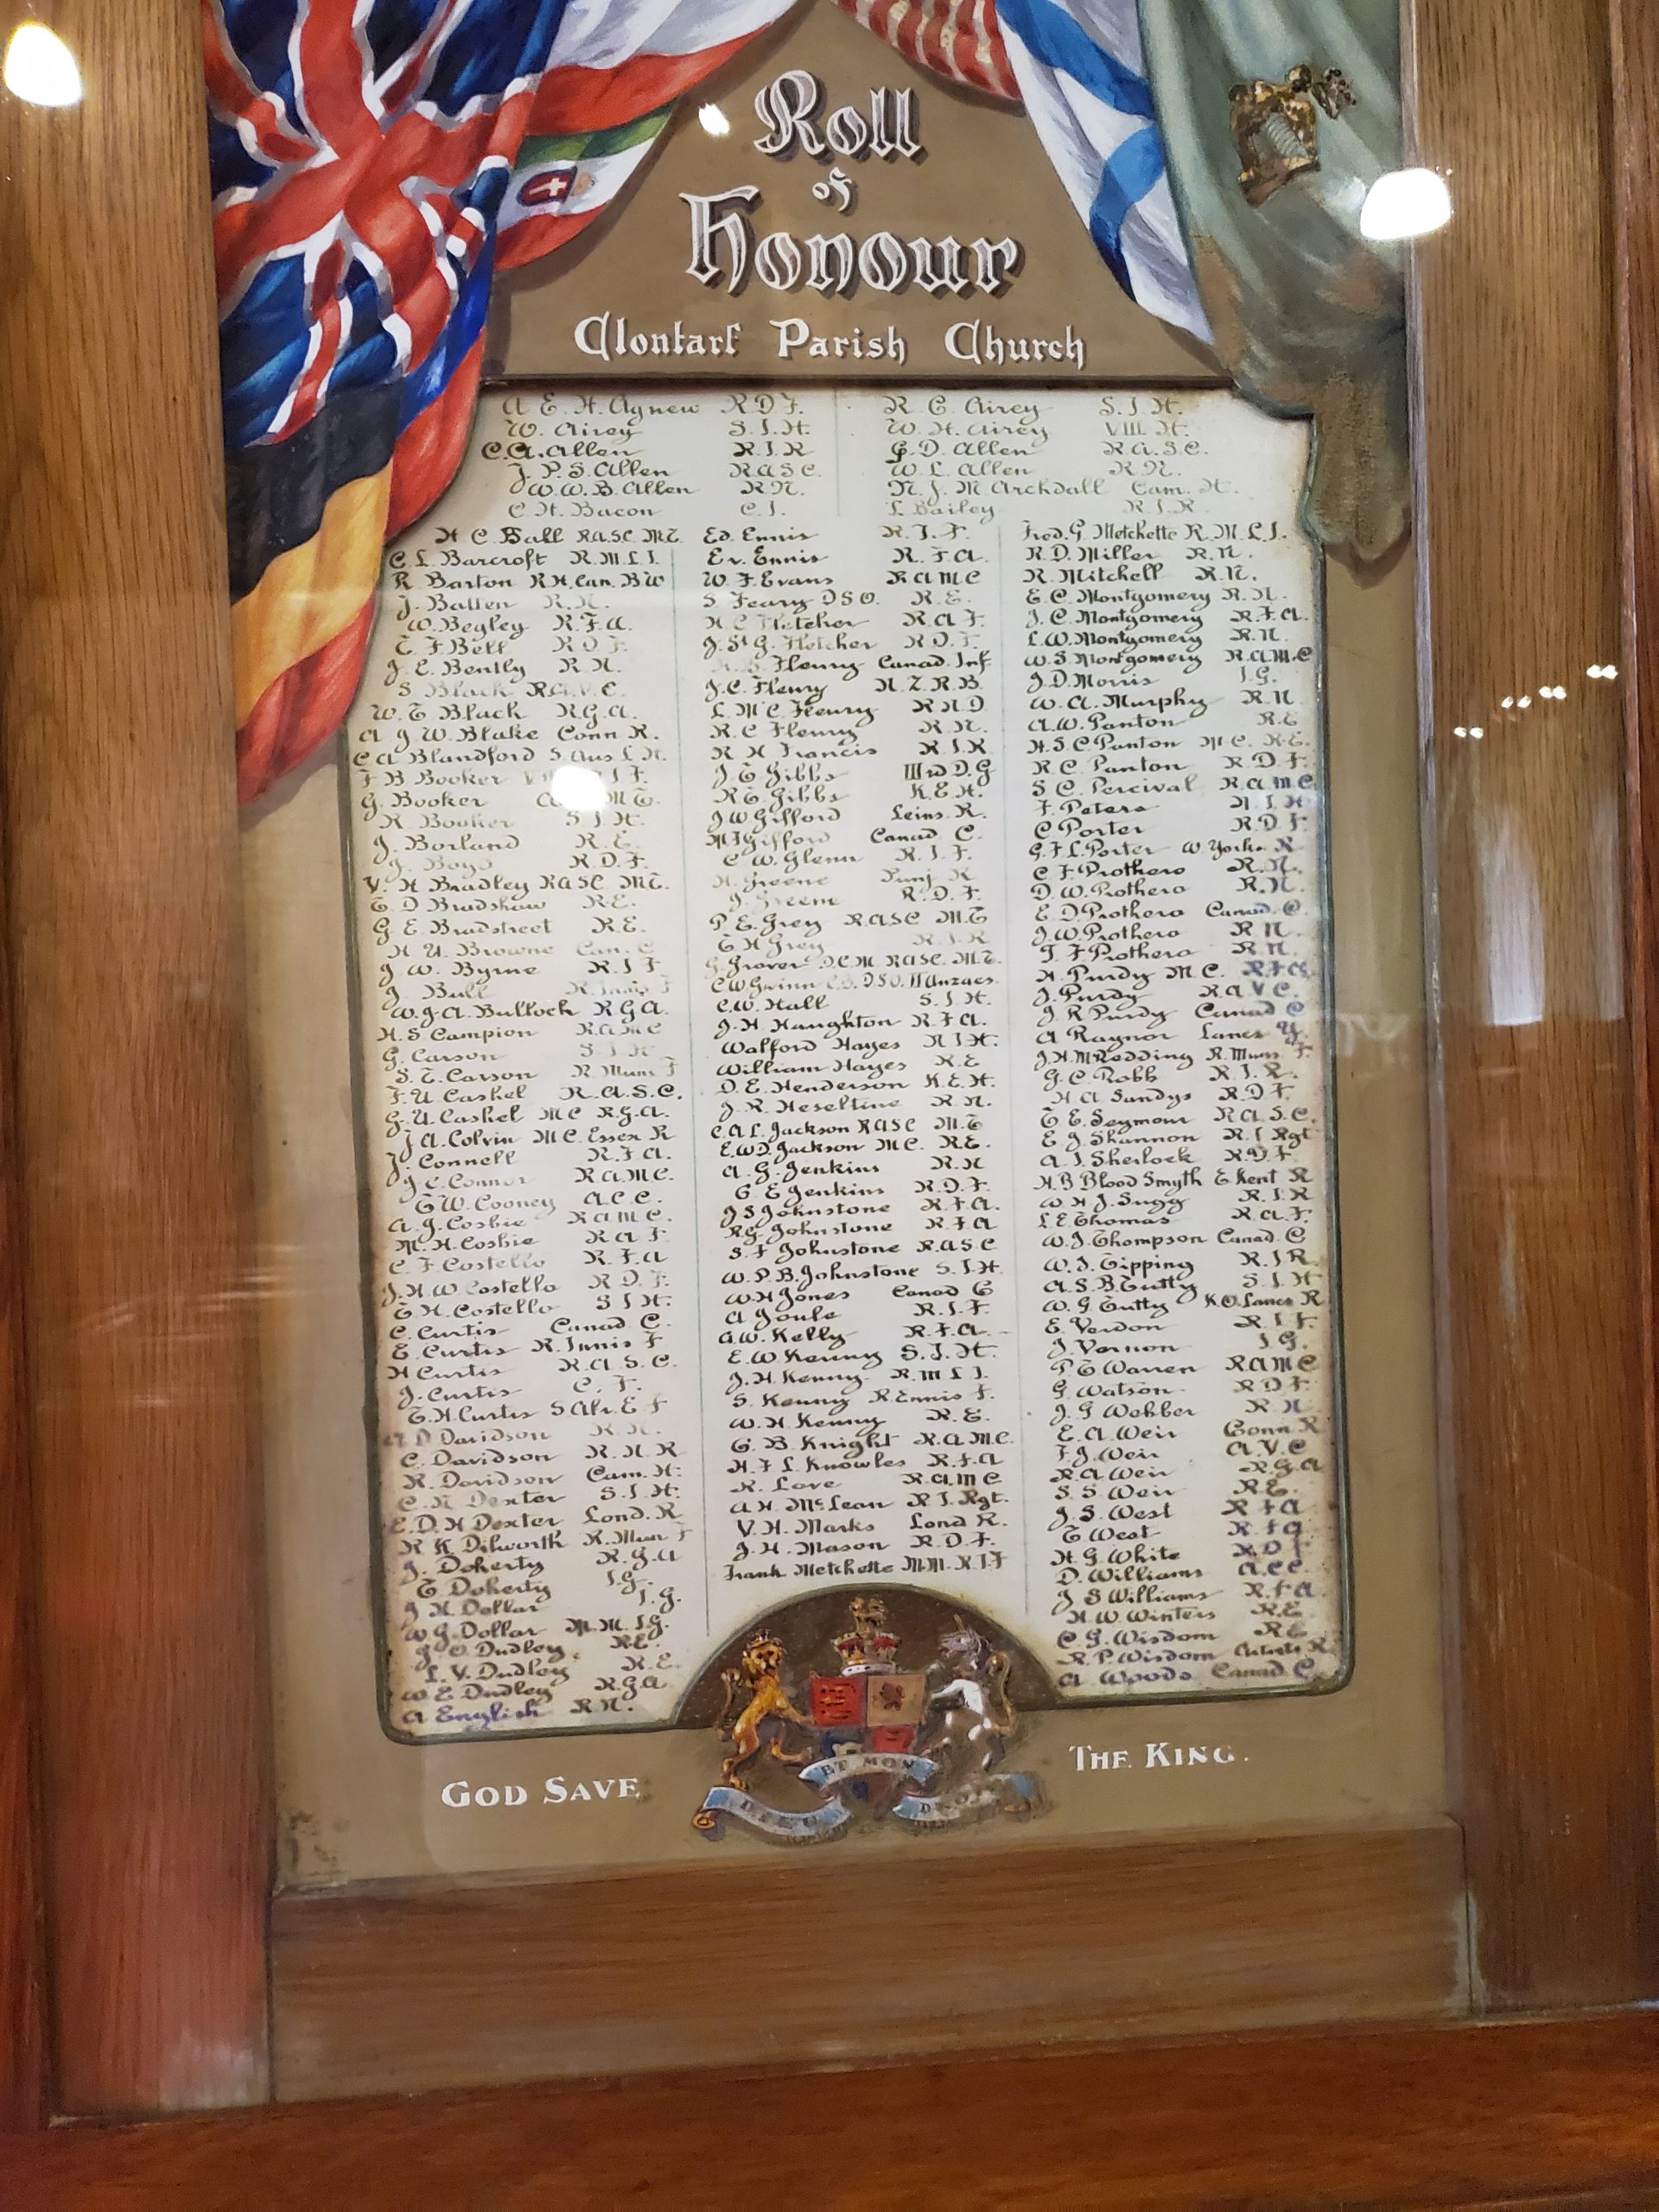 Roll
of
Honour
Clontarf Parish Church
A E. H. Agnew R.D.F.
W. Airey S.I.H.
C.A. Allen R.I.R
J. P. S. Allen R.A.S.C.
W. W. B. Allen R.N.
C. H. Bacon C.I.
R. C. Airey S.I.H.
W. H. Airey VIII H.
G. D. Allen R.A.S.C.
W. L. Allen R.N.
N. J. M. Archdall Cam. H.
L Bailey R.I.R
H C. Ball RASC. M.T.
C. L. Barcroft R.M.L.I.
R. Barton R.H. Can. BW
J. Batten R.N.
W. Begley R.F.A.
T F Bell R D F.
J. E. Bently R.N.
S Black R.A.V.C.
W. T Black R.G.A.
A J W. Blake Conn R.
C A Blandford S Aus L H.
F B Booker I F.
G. Booker M T.
R Booker S I H.
J. Borland R.E.
J. Boyd R.D.F.
V. H Bradley RASC MT.
T. D Bradshaw R.E.
G. E. Bradstreet R.E.
H U. Browne Can. C
J W. Byrne R.I F
J. Bull R. Innis F
W. J. A. Bullock R G A.
H. S Campion R.A.M.C
G. Carson S I H
S. T. Carson R. Muns F
F. U Caskel R.A.S.C.
G. U. Caskel M C R.G.A.
J A. Colvin M C. Essex R
J. Connell R.F.A.
J C. Connor R.A.M.C.
T W. Cooney A.C.C.
A. J. Cosbie R A M C.
M. H. Cosbie R A F
C. F. Costello R.F.A
J. H. W. Costello R D.F.
T H. Costello S I H.
C. Curtis Canad C.
E. Curtis R. Innis F
H Curtis R.A.S.C.
J. Curtis C. F.
T. H. Curtis S Afr. E F
D Davidson R.N.
C. Davidson R.N.R
R. Davidson Cam. H.
C. N Dexter S.I.H.
E. D. H Dexter Lond. R
R K Dilworth R. Muns F
J. Doherty R.G.A
T Doherty I.G.
J H. Dollar I.G.
W G Dollar M.M. I.G.
J. O. Dudley. R.E.
L. V. Dudley R.E.
W E Dudley R.G.A.
A English R.N.
Ed. Ennis R.I.F.
Ev. Ennis R.F.A.
W. F. Evans R A M C
S. Feary D S O. R.E.
H C Fletcher R A F.
J. St G. Fletcher R D.F.
Fleury Canad. Inf
J. C. Fleury N.Z.R.B.
L. Mc C. Fleury R N D
R. C Fleury R N.
R H Francis R.I.R
J. T Gibbs III rd D.G
R T. Gibbs K.E.H.
J W Gifford Leins. R.
M F Gifford Canad. C.
C W. Glenn R.I.F.
H. Greene Punj R
J. Greene R.D.F.
P. E. Grey R.A.S.C M.T
T H Grey R.I.R
G. Grover D.C.M. RASC. M.T.
C W Gwinn C.B. D.S.O. II Anzacs.
C. W. Hall S.I.H.
J. H Haughton R.F.A.
Walford Hayes N I H.
William Hayes R.E
D. E. Henderson K.E.H.
J. R. Heseltine R.N.
C. A L. Jackson RASC M.T
E. W D. Jackson M C. R.E.
A. G. Jenkins R.N
G. E Jenkins R.D.F.
J S Johnstone R.F.A.
R G Johnstone R.F.A
S. F Johnstone R.A.S.C
W. P. B. Johnstone S.I.H.
W. H Jones Canad C
A Joule R.I.F.
A. W. Kelly R.F.A.
E. W Kenny S.I.H.
J. H. Kenny R.M L I.
S. Kenny R Ennis F.
W. H. Kenny R.E.
G. B. Knight R.A.M.C.
H. F L. Knowles R.F.A
R. Love R.A.M C
A H. McLean R I. Rgt.
V. H. Marks Lond R.
J. H. Mason R.D.F.
Frank Metchette M.M. R.I.F
Fred. G. Metchette R.M.L.I.
R. D. Miller R.N.
R. Mitchell R.N.
E. C. Montgomery R.N.
J. C. Montgomery R.F.A.
L. W. Montgomery R.N.
W. S. Montgomery R.A.M.C
J. D. Morris I.G.
W. A. Murphy R.N
A. W. Panton R.E
H. S. C. Panton M C. R.E.
R. C. Panton R.D.F.
S. C. Percival R A M C
F. Peters N I H
C Porter R.D.F.
G. F L. Porter W York. R
C F. Prothero R.N.
D. W. Prothero R.N.
E. D. Prothero Canad. C.
J. W. Prothero R N.
T. F Prothero R N.
H. Purdy M C. R F A.
J. Purdy R.A V C.
J. R Purdy Canad C
A Raynor Lancs Y.
J. H. M Redding R. Muns F.
G. C. Robb R.I.R.
H A Sandys R.D F.
T E. Seymour R A.S.C.
E J. Shannon R.I Rgt
A. J. Sherlock R.D.F.
H. B Blood Smyth E. Kent R
W H J. Sugg R.I.R
L E Thomas R.A.F.
W. J. Thompson Canad. C
W. J. Tipping R.I R.
A. S. B Tutty S.I.H
W. G Tutty K.O. Lancs R
E. Verdon R.I F.
J. Vernon I G.
P T Warren R A M C
G Watson R D F.
J. G Webber R.N
E. A Weir Conn R
F. J. Weir A.V.C
R A Weir R.G.A
S. S. Weir R.E.
J. S. West R F A
T West R F A
H. G White R.D F
D. Williams A.C.C.
J S Williams R.F.A.
H. W. Winters R.E
C. G. Wisdom R.E
R. P. Wisdom Artists R
A Woods Canad C.
God Save The King.